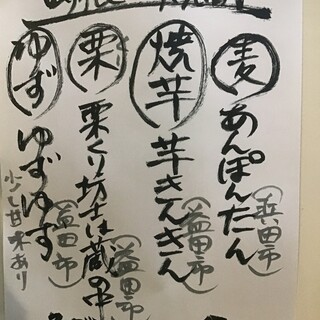 麦 あんぽんたん (浜田市)
焼芋 芋きんきん (益田市)
栗 栗くり坊主は蔵の中 (益田市)
ゆず ゆずゆず (益田市)
少し甘味あり